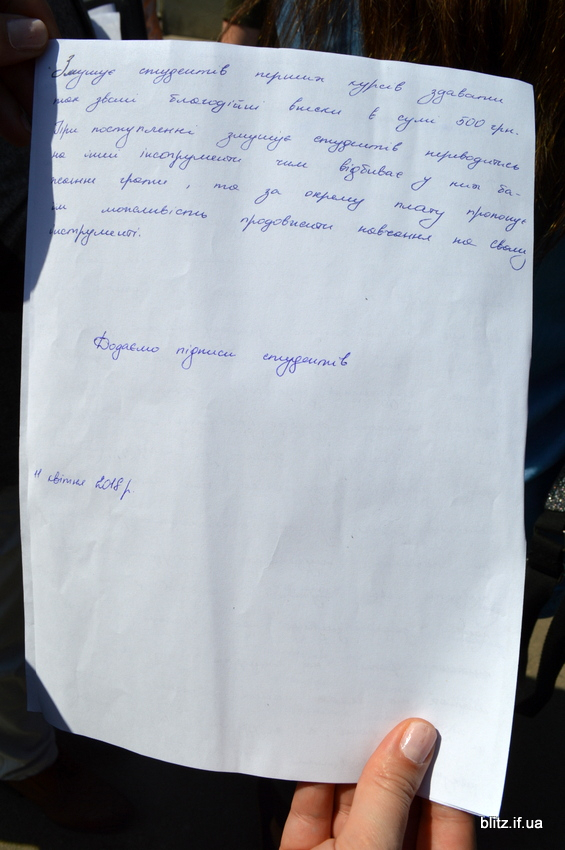 Змушує студентів перших курсів здавати
так звані благодійні внески в сумі 500 грн.
При поступленні змушує студентів переводитись
на інші інструменти чим відбиває у них ба-
жання грати, та за окрему плату пропонує
їм можливість продовжити навчання на своєму
інструменті.
Додаємо підписи студентів
11 квітня 2018 р.
blitz.if.ua